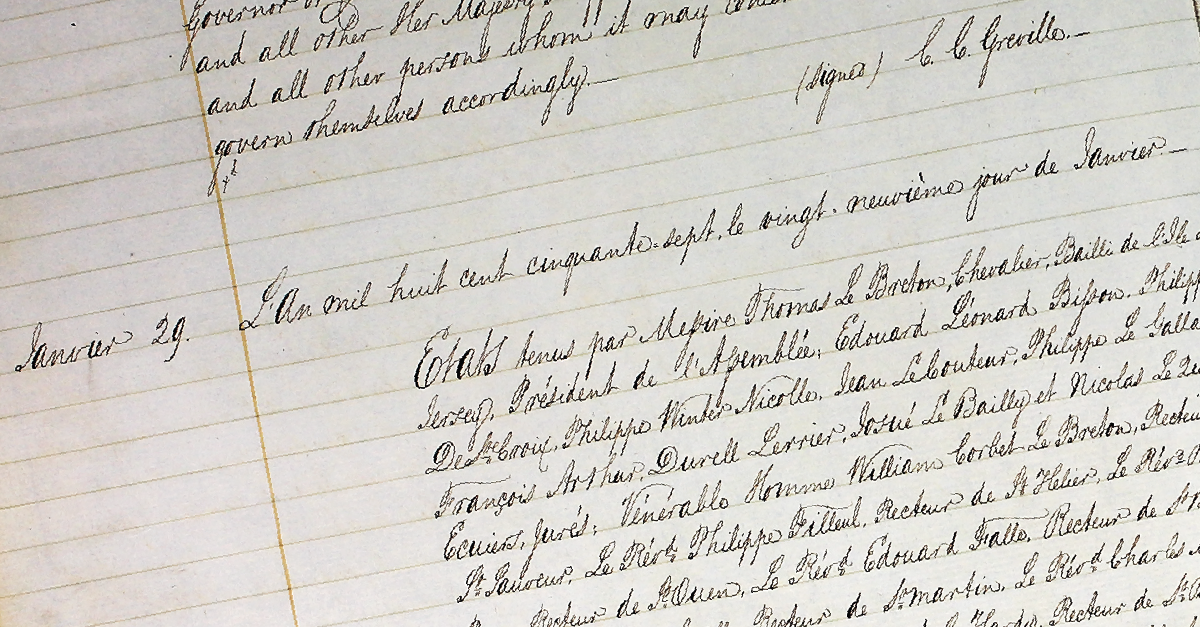 Governor or
and all other Her Majesty's
and all other persons whom it may concern
govern themselves accordingly.—
(signed) C. C. Greville.—
L'An mil huit cent cinquante-sept, le vingt-neuvième jour de Janvier.—
Janvier 29.
Etats tenus par Messire Thomas Le Breton, Chevalier, Bailli de l'Ile
Jersey, Président de l'Assemblée; Edouard Léonard Bisson, Philippe
De Ste Croix, Philippe Winter Nicolle, Jean Le Couteur, Philippe Le Gallais
François Arthur, Durell Lerrier, Josué Le Bailly et Nicolas Le
Ecuiers, Jurés; Vénérable Homme William Corbet Le Breton, Recteur
St Sauveur, Le Révd Philippe Filleul, Recteur de St Hélier, Le Révd
Recteur de St Ouen, Le Révd Edouard Falle, Recteur de
Recteur de St Martin, Le Révd Charles
Recteur de St